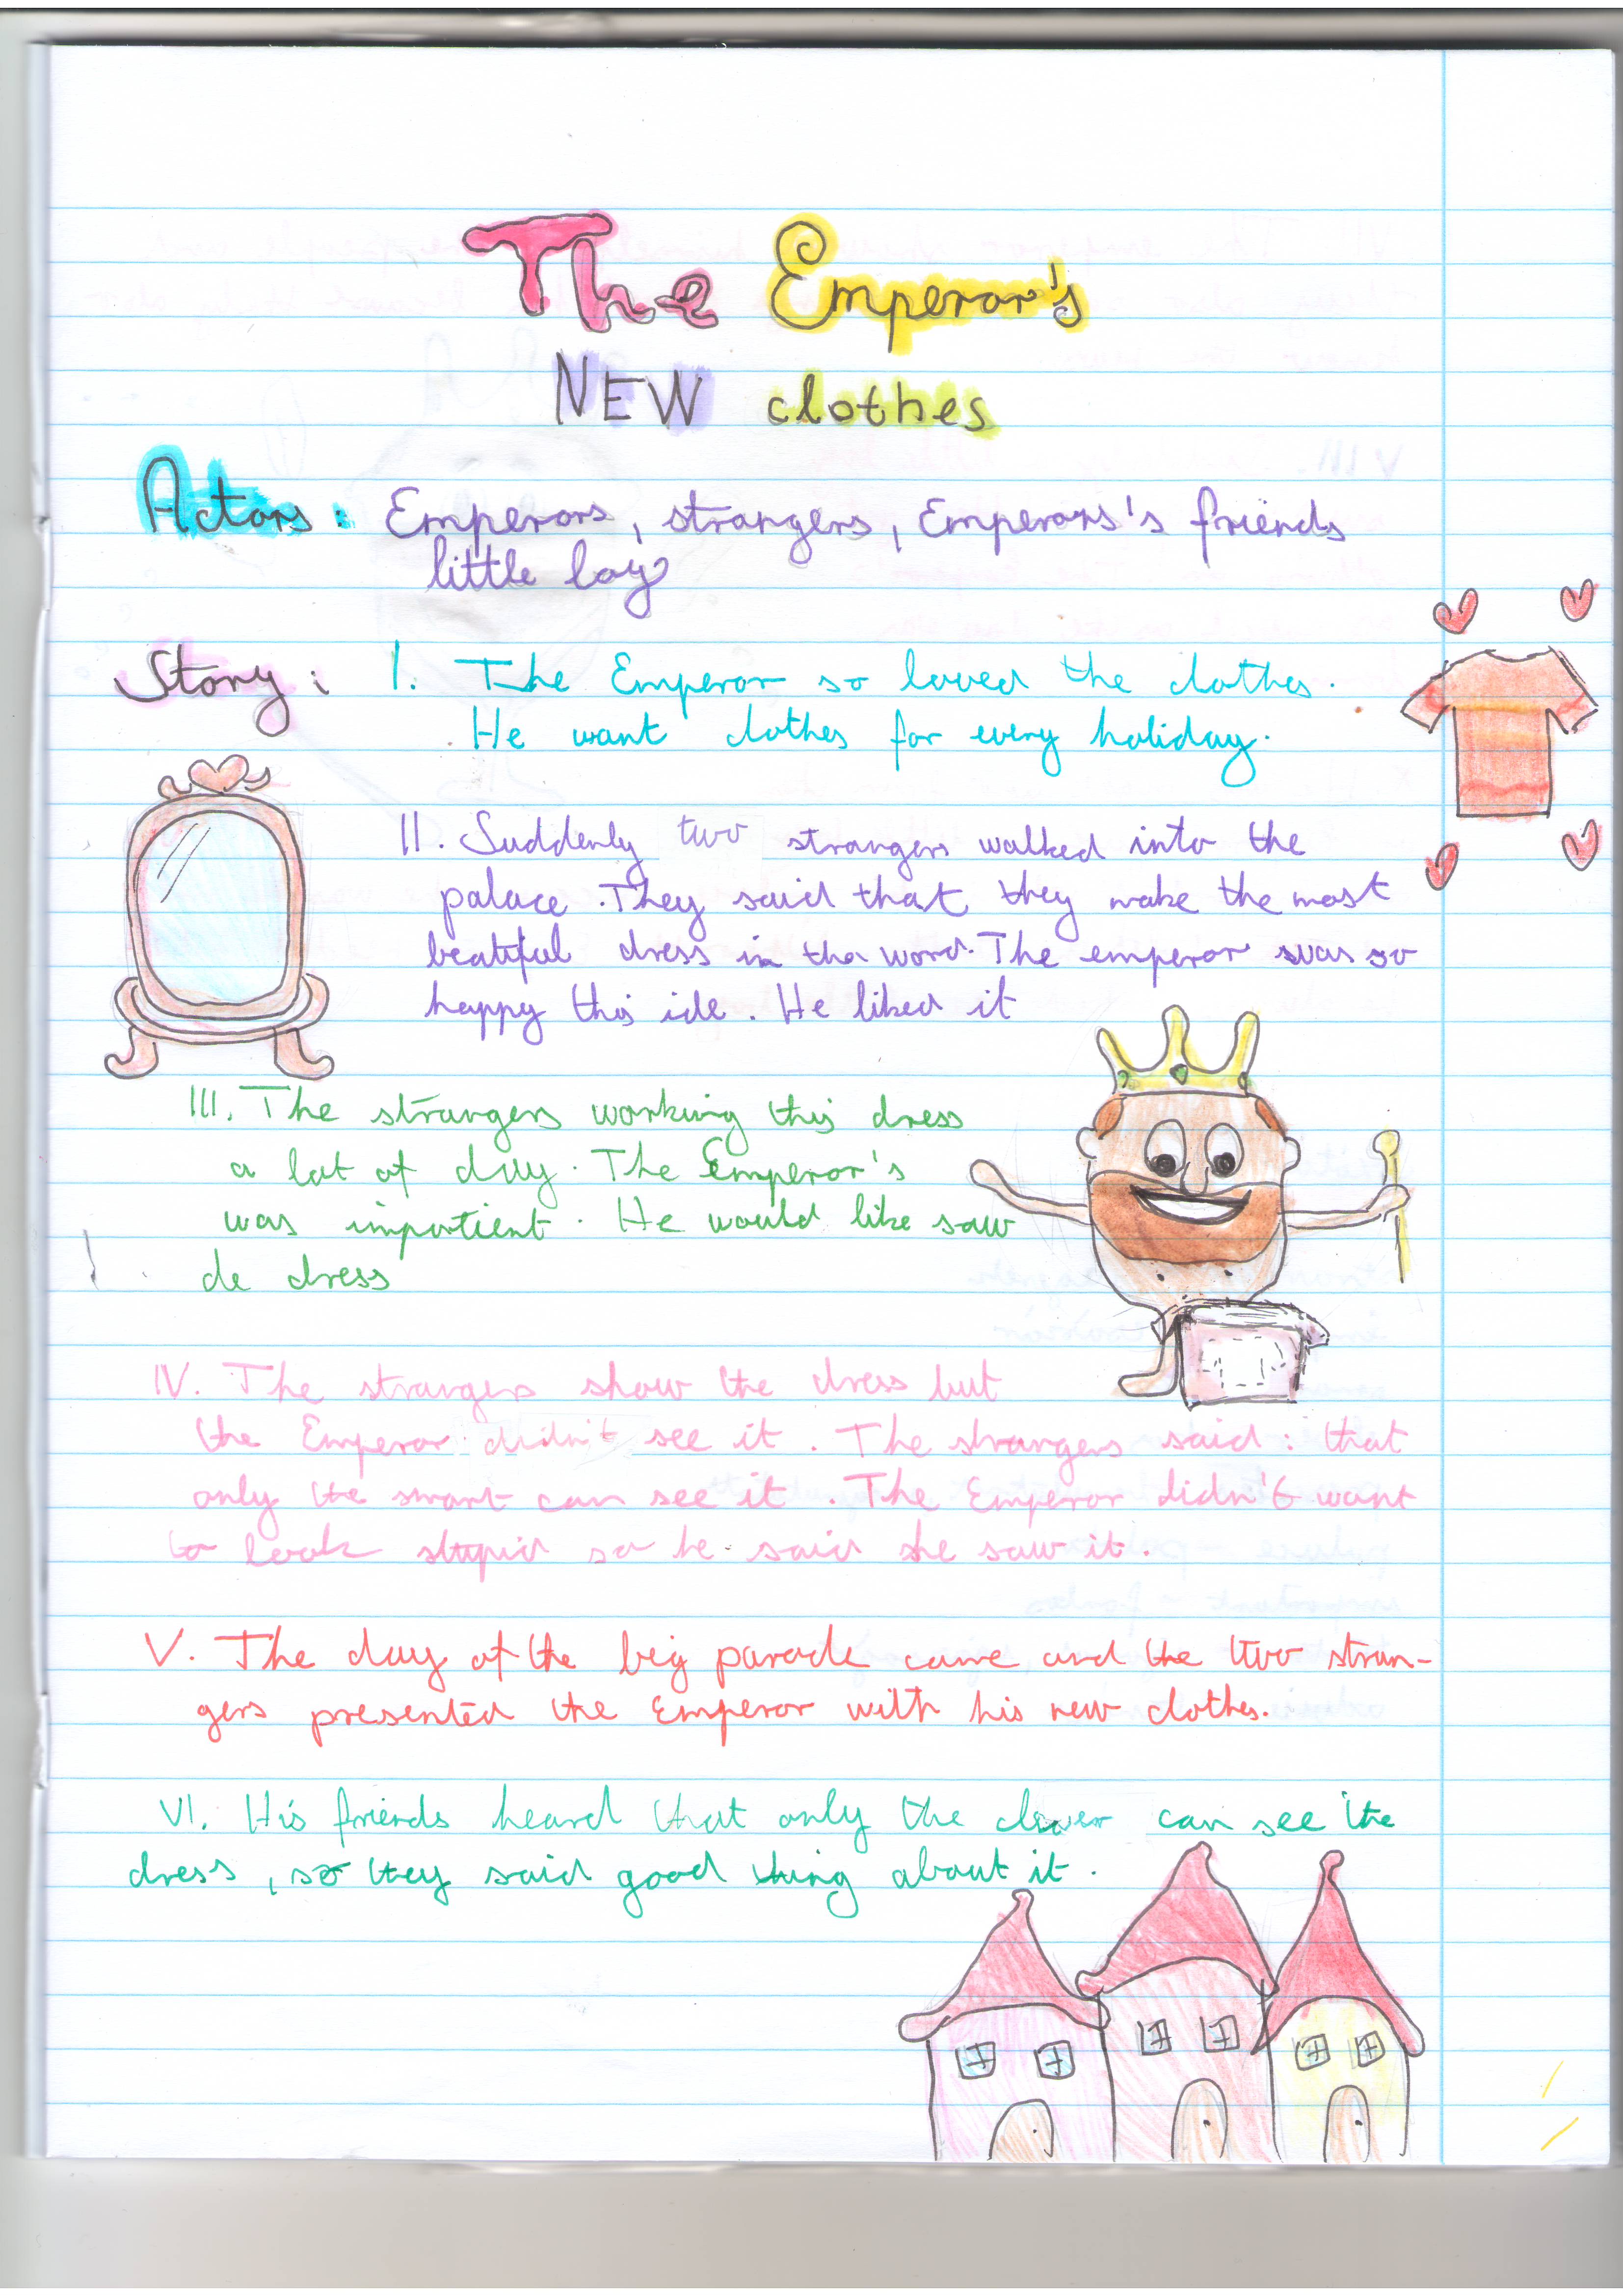 The Emperor's
NEW clothes
Actors: Emperors, strangers, Emperors's friends
little boy
Story: I. The Emperor so loved the clothes.
He want clothes for every holiday.
II. Suddenly two strangers walked into the
palace. They said that they make the most
beatiful dress in the word. The emperor was so
happy this ide. He liked it
III. The strangers working this dress
a lot of day. The Emperor's
was impatient. He would like saw
de dress
IV. The strangers show the dress but
the Emperor didn't see it. The strangers said: that
only the smart can see it. The Emperor didn't want
to look stupid so he said she saw it.
V. The day of the big parade came and the two stran-
gers presented the Emperor with his new clothes.
VI. His friends heard that only the clever can see the
dress, so they said good thing about it.